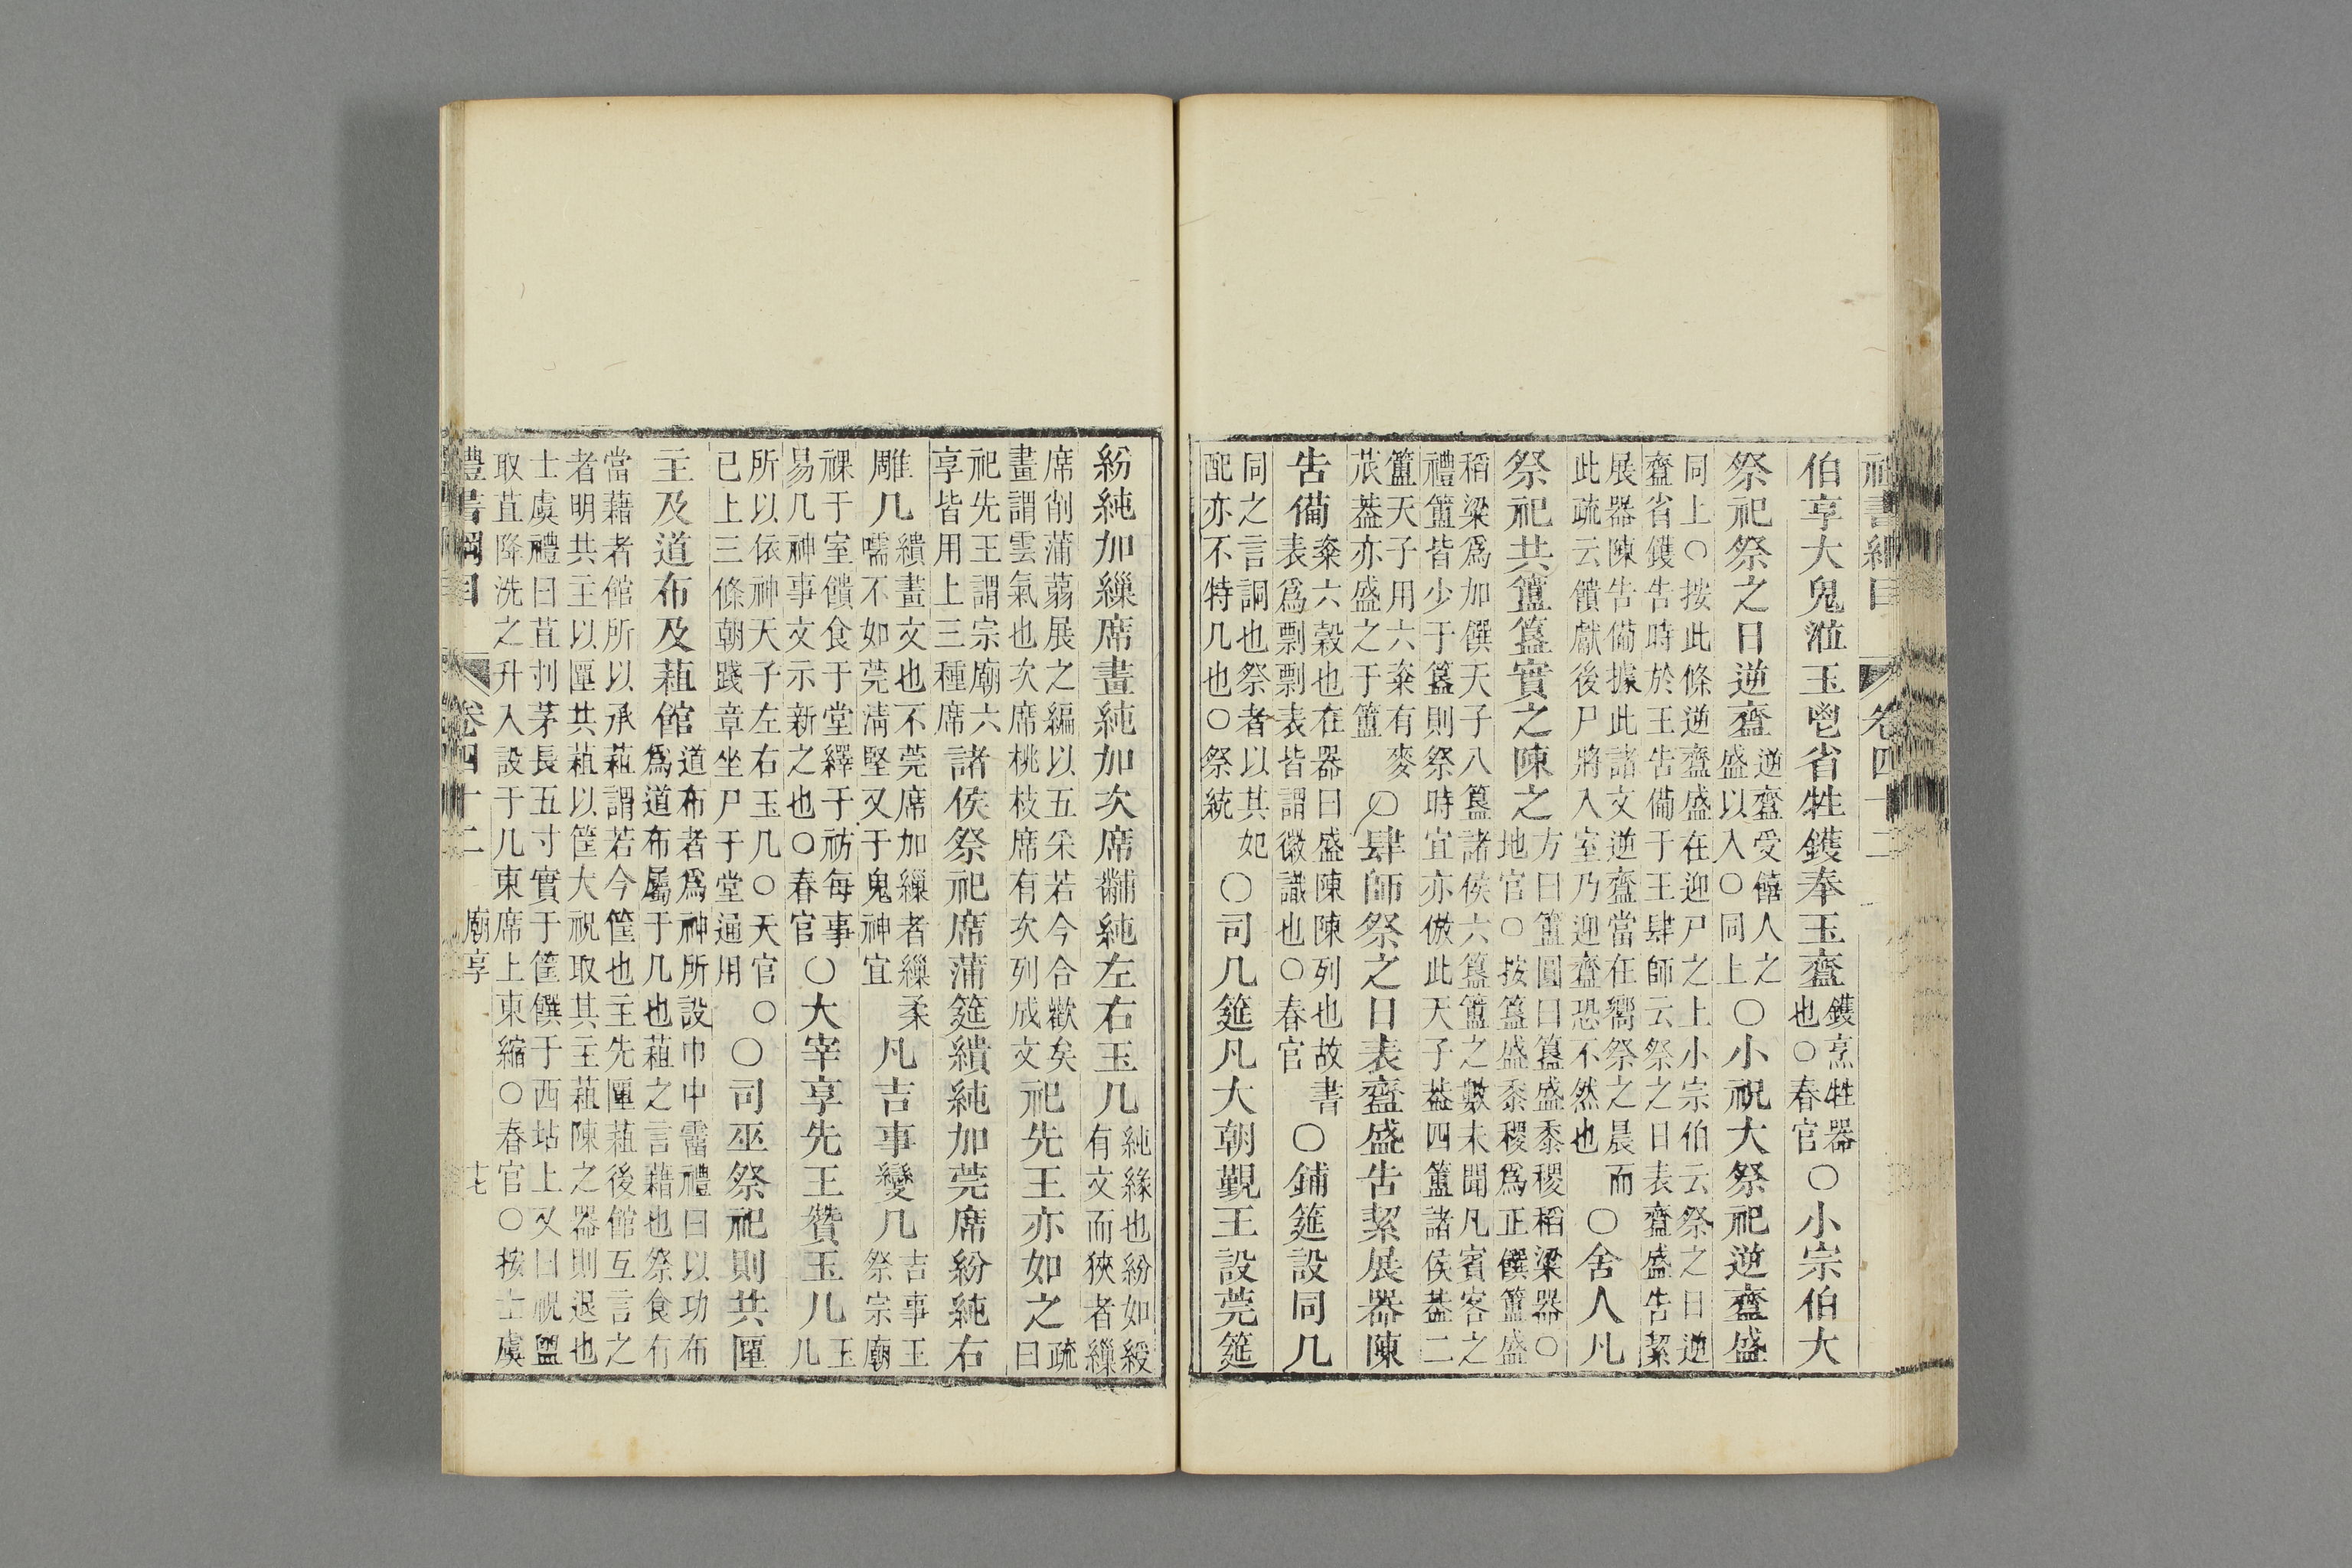 禮書綱目 卷四十二
伯享大鬼涖玉鬯省牲鑊奉玉齍鑊烹牲器
也○春官○小宗伯大
祭祀祭之日逆齍逆齍受饎人之
盛以入○同上○小祝大祭祀逆齍盛
同上○按此條逆齍盛在迎尸之上小宗伯云祭之日逆
齍省鑊告時於王告備于王肆師云祭之日表齍盛告絜
展器陳告備據此諸文逆齍當在嚮祭之晨而
此疏云饋獻後尸將入室乃迎齍恐不然也○舍人凡
祭祀共簠簋實之陳之方曰簠圓曰簋盛黍稷稻粱器○
地官○按簋盛黍稷爲正饌簠盛
稻粱爲加饌天子八簋諸侯六簋簠之數未聞凡賓客之
禮簠皆少于簋則祭時宜亦倣此天子葢四簠諸侯葢二
簠天子用六粢有麥
苽葢亦盛之于簠○肆師祭之日表齍盛告絜展器陳
告備粢六穀也在器曰盛陳陳列也故書
表爲剽剽表皆謂徽識也○春官○鋪筵設同几
同之言詷也祭者以其妃
配亦不特几也○祭統○司几筵凡大朝覲王設莞筵
紛純加繅席畫純加次席黼純左右玉几純緣也紛如綬
有文而狹者繅
席削蒲蒻展之編以五采若今合歡矣
畫謂雲氣也次席桃枝席有次列成文祀先王亦如之疏
曰
祀先王謂宗廟六
享皆用上三種席諸侯祭祀席蒲筵繢純加莞席紛純右
雕几繢畫文也不莞席加繅者繅柔
嚅不如莞清堅又于鬼神宜凡吉事變几吉事王
祭宗廟
祼于室饋食于堂繹于祊每事
易几神事文示新之也○春官○大宰享先王贊玉几玉
几
所以依神天子左右玉几○天官○
已上三條朝踐章坐尸于堂通用○司巫祭祀則共匰
主及道布及蒩館道布者爲神所設巾中霤禮曰以功布
爲道布屬于几也蒩之言藉也祭食有
當藉者館所以承蒩謂若今筐也主先匰蒩後館互言之
者明共主以匰共蒩以筐大祝取其主蒩陳之器則退也
士虞禮曰苴刌茅長五寸實于筐饌于西坫上又曰祝盥
取苴降洗之升入設于几東席上東縮○春官○按士虞
禮書綱目 卷四十二 廟享 十七